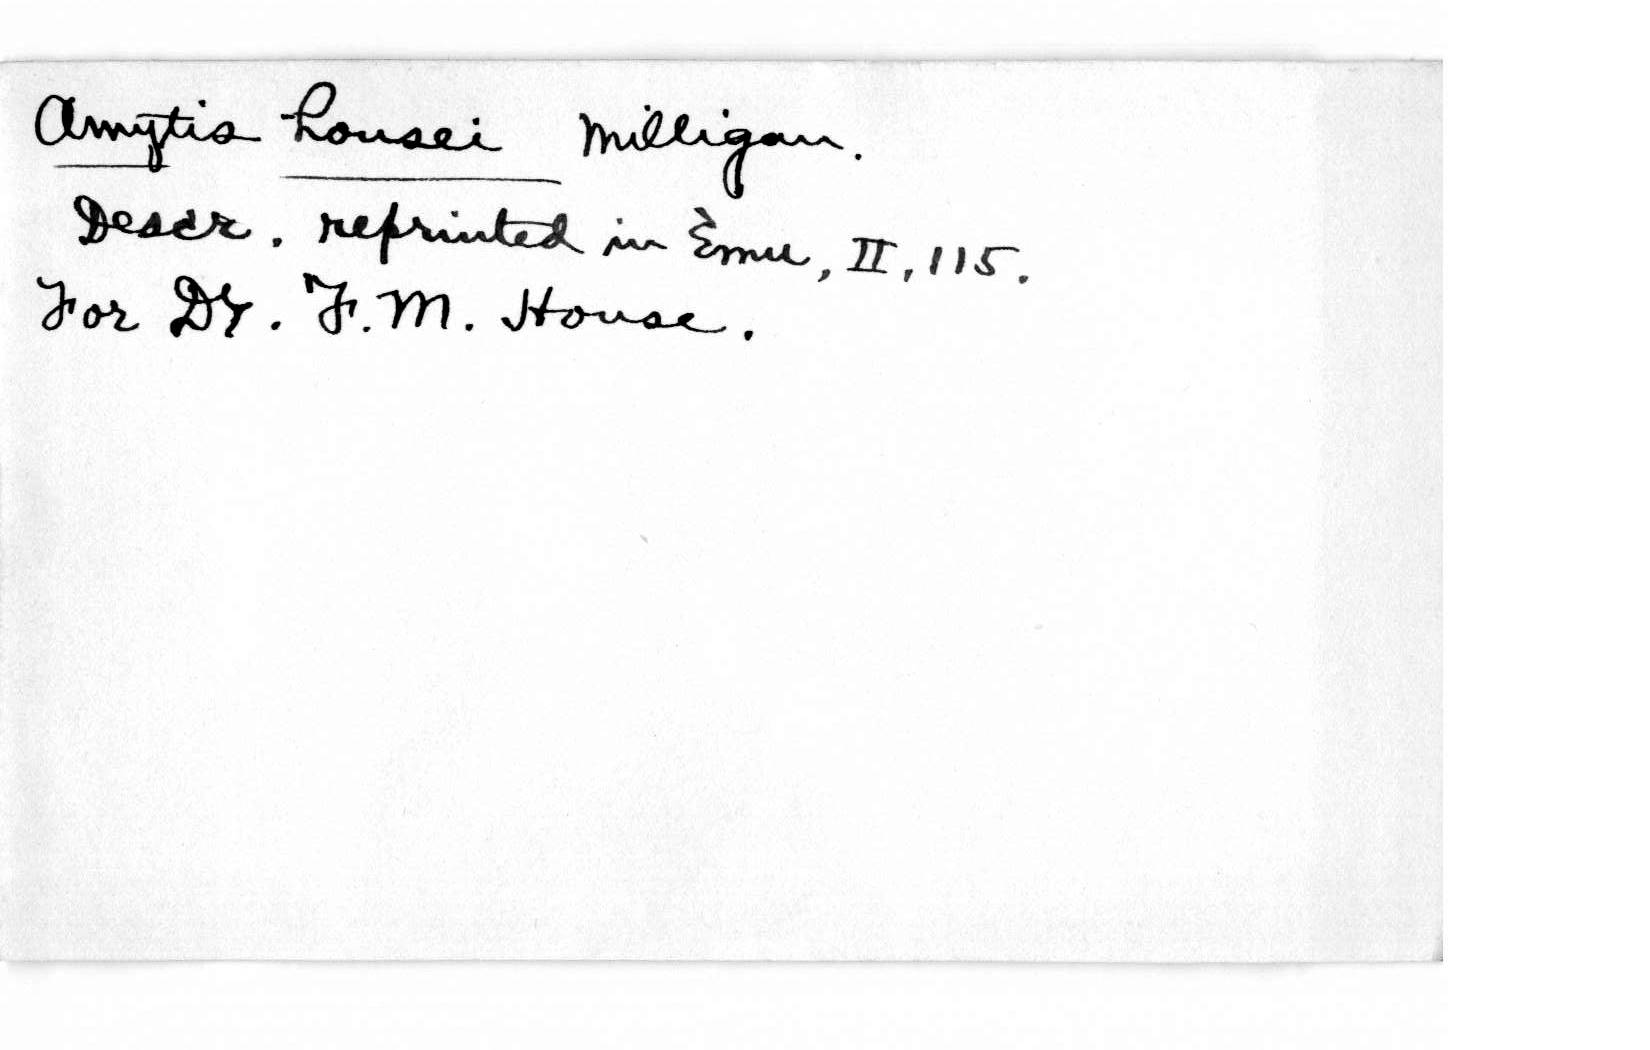 Amytis housei Milligan.
Descr. reprinted in Emu, II, 115.
For Dr. F. M. House.